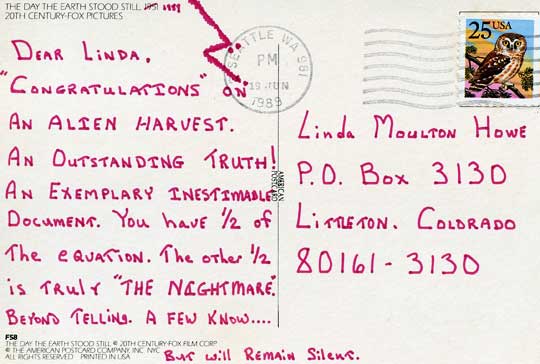 THE DAY THE EARTH STOOD STILL, 1951 1951
20TH CENTURY-FOX PICTURES
DEAR LINDA,
"CONGRATULATIONS" ON
AN ALIEN HARVEST.
AN OUTSTANDING TRUTH!
AN EXEMPLARY INESTIMABLE
DOCUMENT. YOU HAVE 1/2 OF
THE EQUATION. THE OTHER 1/2
IS TRULY "THE NIGHTMARE"
BEYOND TELLING. A FEW KNOW....
BUT WILL REMAIN SILENT.
F58
THE DAY THE EARTH STOOD STILL © 20TH CENTURY-FOX FILM CORP
© THE AMERICAN POSTCARD COMPANY, INC NYC
ALL RIGHTS RESERVED PRINTED IN USA
AMERICAN
POSTCARD
SEATTLE WA 981
PM
19 JUN
1989
25 USA
LINDA MOULTON HOWE
P.O. BOX 3130
LITTLETON, COLORADO
80161-3130